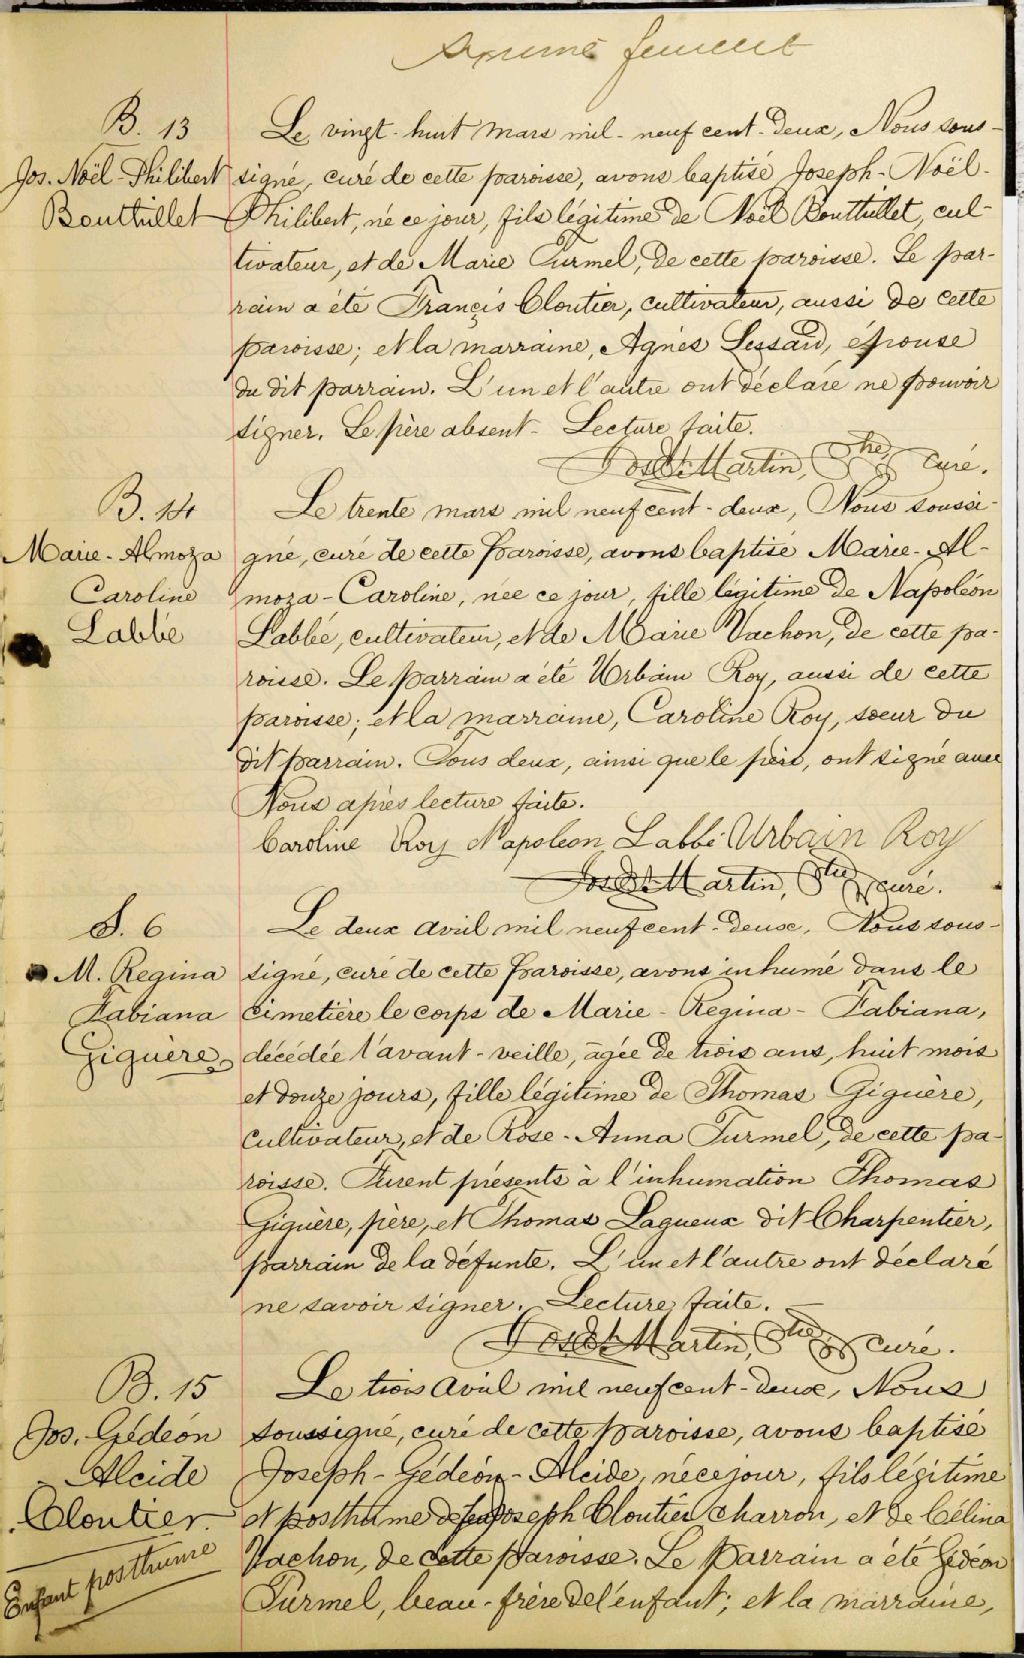 feuillet
B. 13
Jos. Noël-Philibert
Bouthillet
Le vingt-huit mars mil-neuf cent-deux, Nous sous-
signé, curé de cette paroisse, avons baptisé Joseph-Noël-
Philibert, né ce jour, fils légitime de Noël Bouthillet, cul-
tivateur, et de Marie Turmel, de cette paroisse. Le par-
rain a été Françis Cloutier, cultivateur, aussi de cette
paroisse; et la marraine, Agnès Lessard, épouse
du dit parrain. L'un et l'autre ont déclaré ne pouvoir
signer. Le père absent - Lecture faite.
Jos. Et. Martin, Ptre, curé.
B. 14
Marie-Almoza
Caroline
Labbé
Le trente mars mil neuf cent-deux, Nous soussi-
gné, curé de cette paroisse, avons baptisé Marie-Al-
moza-Caroline, née ce jour, fille légitime de Napoléon
Labbé, cultivateur, et de Marie Vachon, de cette pa-
roisse. Le parrain a été Urbain Roy, aussi de cette
paroisse; et la marraine, Caroline Roy, soeur du
dit parrain. Tous deux, ainsi que le père, ont signé avec
Nous après lecture faite.
Caroline Roy Napoleon Labbé Urbain Roy
Jos. Et. Martin, Ptre, curé.
S. 6
M. Regina
Fabiana
Giguère
Le deux avril mil neuf cent-deux, Nous sous-
signé, curé de cette paroisse, avons inhumé dans le
cimetière le corps de Marie-Regina-Fabiana,
décédée l'avant-veille, âgée de trois ans, huit mois
et douze jours, fille légitime de Thomas Giguère,
cultivateur, et de Rose-Anna Turmel, de cette pa-
roisse. Furent présents à l'inhumation Thomas
Giguère, père, et Thomas Lagueux dit Charpentier,
parrain de la défunte. L'un et l'autre ont déclaré
ne savoir signer. Lecture faite.
Jos. Et. Martin, Ptre, curé.
B. 15
Jos. Gédéon
Alcide
Cloutier.
Enfant posthume
Le trois avril mil neuf cent-deux, Nous
soussigné, curé de cette paroisse, avons baptisé
Joseph-Gédéon-Alcide, né ce jour, fils légitime
et posthume de feu Joseph Cloutier Charron, et de Célina
Vachon, de cette paroisse. Le parrain a été Gédéon
Turmel, beau-frère de l'enfant; et la marraine,